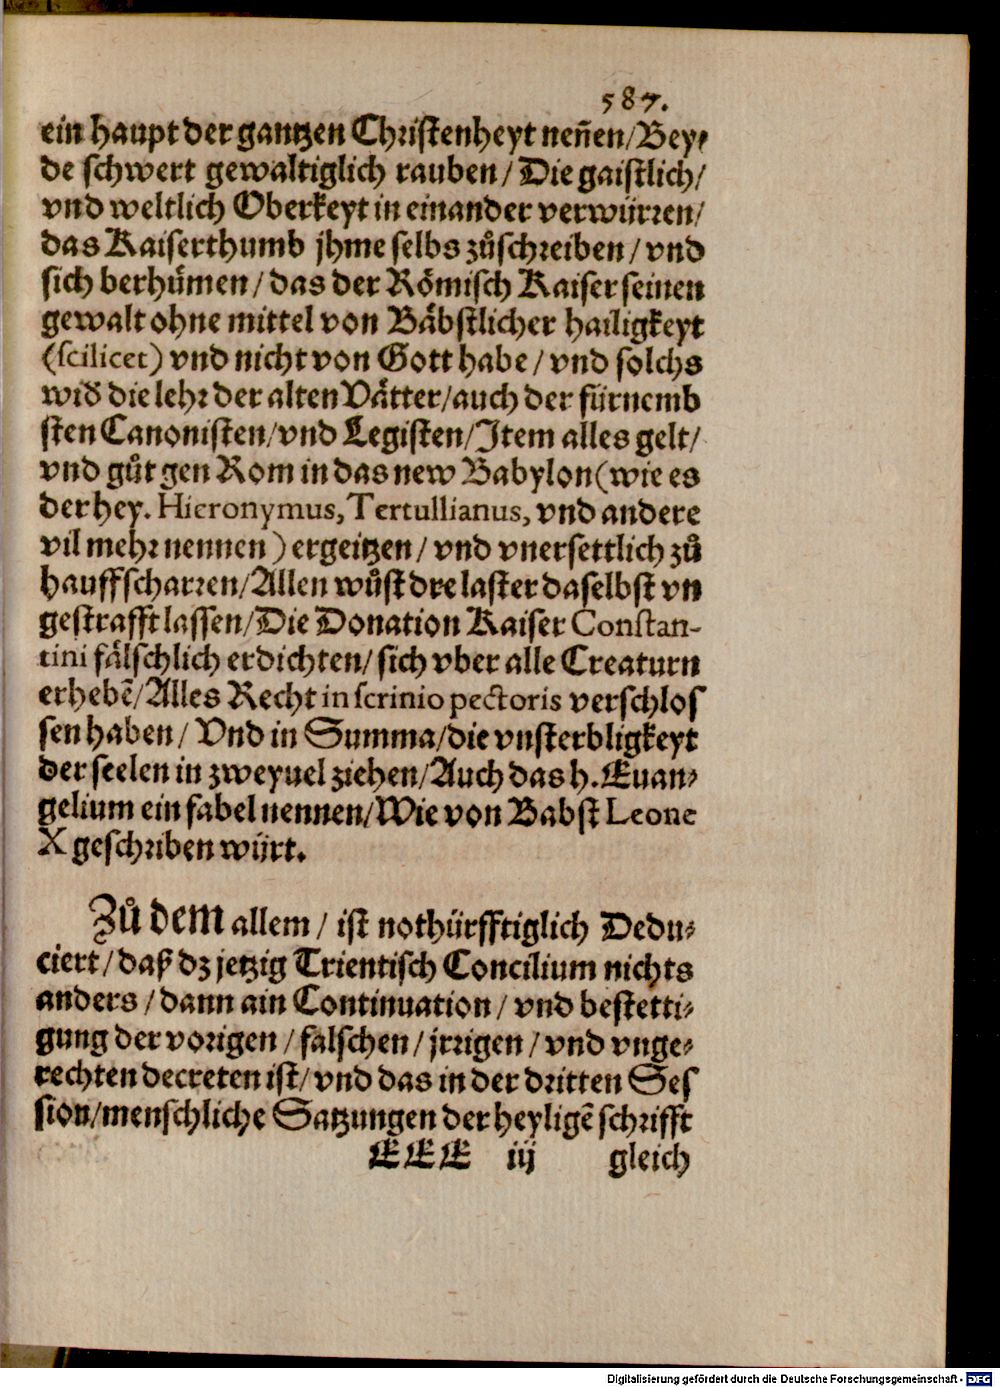 587.
ein haupt der gantzen Christenheyt neñen/Bey-
de schwert gewaltiglich rauben/ Die gaistlich/
vnd weltlich Oberkeyt in einander verwürren/
das Kaiserthumb jhme selbs zůschreiben/ vnd
sich berhümen/das der Römisch Kaiser seinen
gewalt ohne mittel von Bäbstlicher hailigkeyt
(scilicet) vnd nicht von Gott habe/ vnd solchs
wid̃ die lehr der alten Vätter/auch der fürnemb
sten Canonisten/vnd Legisten/Item alles gelt/
vnd gůt gen Rom in das new Babylon(wie es
der hey. Hieronymus, Tertullianus, vnd andere
vil mehr nennen) ergeitzen/ vnd vnersettlich zů
hauffscharren/Allen wůst dre laster daselbst vn
gestrafft lassen/Die Donation Kaiser Constan-
tini fälschlich erdichten/ sich vber alle Creaturn
erhebẽ/Alles Recht in scrinio pectoris verschlos
sen haben/ Vnd in Summa/die vnsterbligkeyt
der seelen in zweyuel ziehen/Auch das h. Euan-
gelium ein fabel nennen/Wie von Babst Leone
X geschriben würt.
Zů dem allem/ ist nothürfftiglich Dedu-
ciert/daß dz jetzig Trientisch Concilium nichts
anders/dann ain Continuation/ vnd bestetti-
gung der vorigen/falschen/jrrigen/vnd vnge-
rechten decreten ist/vnd das in der dritten Ses
sion/menschliche Satzungen der heyligẽ schrifft
EEE iij gleich
Digitalisierung gefördert durch die Deutsche Forschungsgemeinschaft - DFG